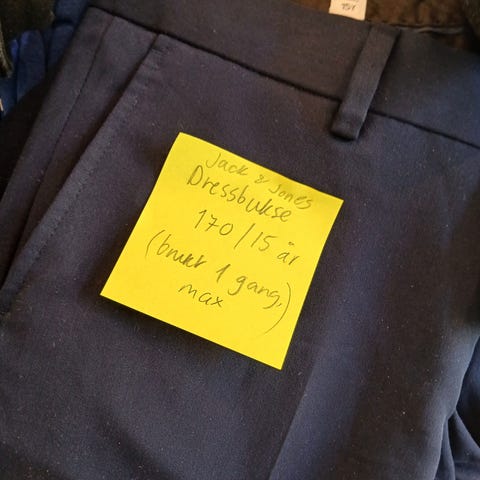 Jack & Jones
Dressbukse
170/15 år
(brukt 1 gang,
max)